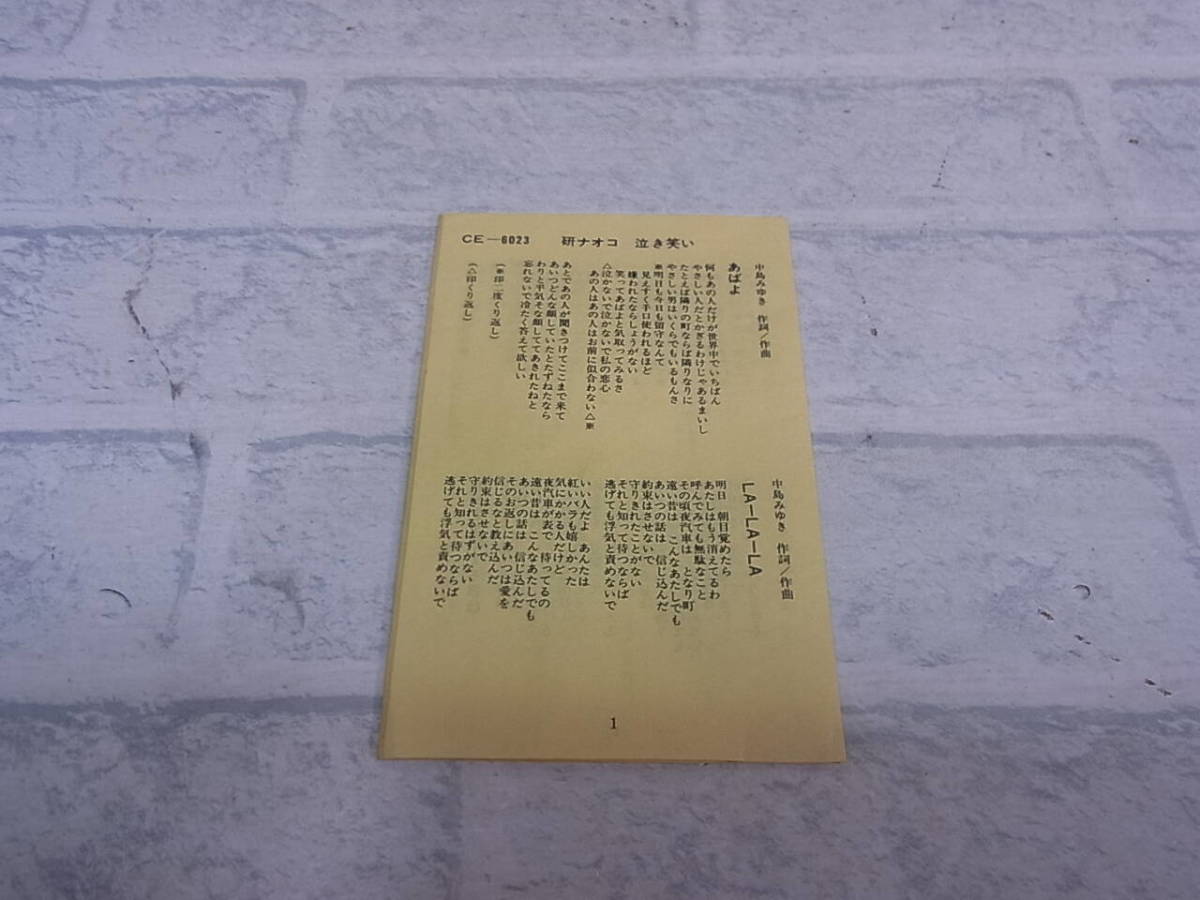 CE—6023　研ナオコ　泣き笑い
中島みゆき　作詞／作曲
あばよ
何もあの人だけが世界中でいちばん
やさしい人だとかぎるわけじゃあるまいし
たとえば隣りの町ならば隣りなりに
やさしい男はいくらでもいるもんさ
※明日も今日も留守なんて
見えすく手口使われるほど
嫌われたならしょうがない
笑ってあばよと気取ってみるさ
△泣かないで泣かないで私の恋心
あの人はあの人はお前に似合わない△※
あとであの人が聞きつけてここまで来て
あいつどんな顔していたとたずねたなら
わりと平気そな顔しててあきれたねと
忘れないで冷たく答えて欲しい
（※印二度くり返し）
（△印くり返し）
中島みゆき　作詞／作曲
LA—LA—LA
明日　朝目覚めたら
あたしはもう消えてるわ
呼んでみても無駄なこと
その頃夜汽車は　となり町
遠い昔は　こんなあたしでも
あいつの話は　信じ込んだ
約束はさせないで
守りきれたことがない
それと知って待つならば
逃げても浮気と責めないで
いい人だよ　あんたは
紅いバラも嬉しかった
気にかかる人だけど
夜汽車が表で　待ってるの
遠い昔は　こんなあたしでも
あいつの話は　信じ込んだ
そのお返しにあいつは愛を
信じるなと教え込んだ
約束はさせないで
守りきれるはずがない
それと知って待つならば
逃げても浮気と責めないで
1